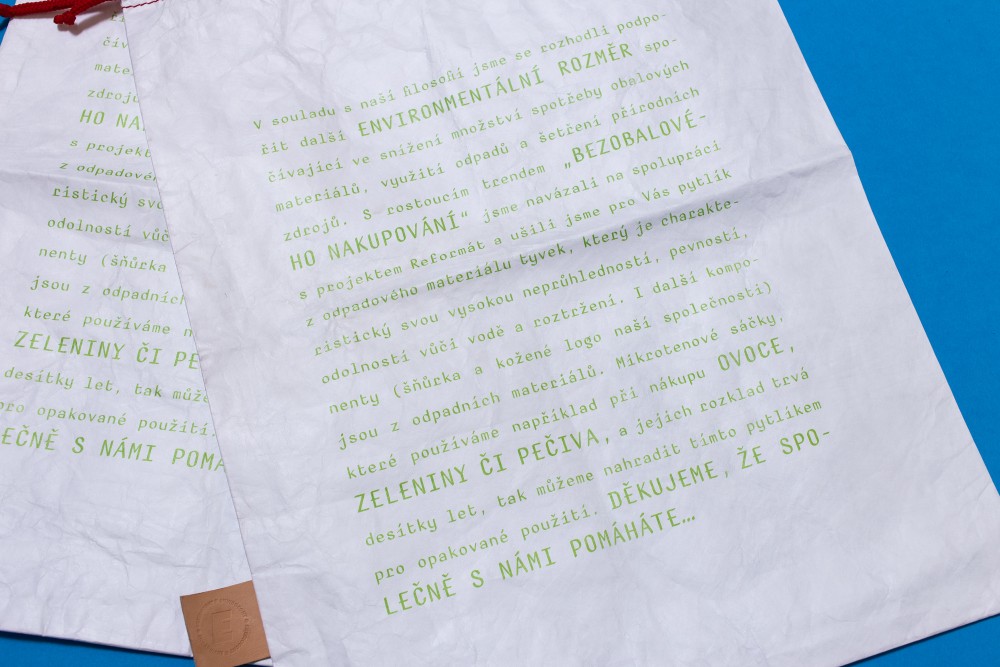 V souladu s naší filosofií jsme se rozhodli podpo-
čit další ENVIRONMENTÁLNÍ ROZMĚR spo-
čívající ve snížení množství spotřeby obalových
materiálů, využití odpadů a šetření přírodních
zdrojů. S rostoucím trendem „BEZOBALOVÉ-
HO NAKUPOVÁNÍ“ jsme navázali na spolupráci
s projektem Reformát a ušili jsme pro Vás pytlík
z odpadového materiálu tyvek, který je charakte-
ristický svou vysokou neprůhledností, pevností,
odolností vůči vodě a roztržení. I další kompo-
nenty (šňůrka a kožené logo naší společnosti)
jsou z odpadních materiálů. Mikrotenové sáčky,
které používáme například při nákupu OVOCE,
ZELENINY ČI PEČIVA, a jejich rozklad trvá
desítky let, tak můžeme nahradit tímto pytlíkem
pro opakované použití. DĚKUJEME, ŽE SPO-
LEČNĚ S NÁMI POMÁHÁTE…
čív
mate
zdrojů
HO NA
s projekt
z odpadové
ristický svo
odolností vůč
nenty (šňůrka
jsou z odpadních
které používáme n
ZELENINY ČI PE
desítky let, tak může
pro opakované použití.
LEČNĚ S NÁMI POMÁ